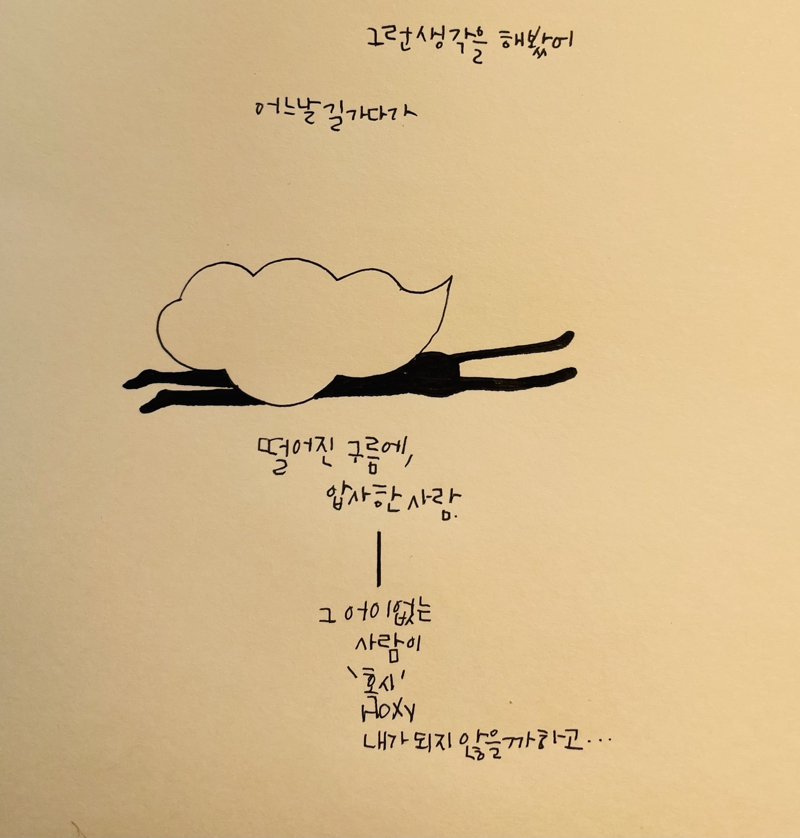 그런 생각을 해봤어
어느날 길가다가
떨어진 구름에,
압사한 사람.
그 어이없는
사람이
'혹시'
Hoxy
내가 되지 않을까하고...